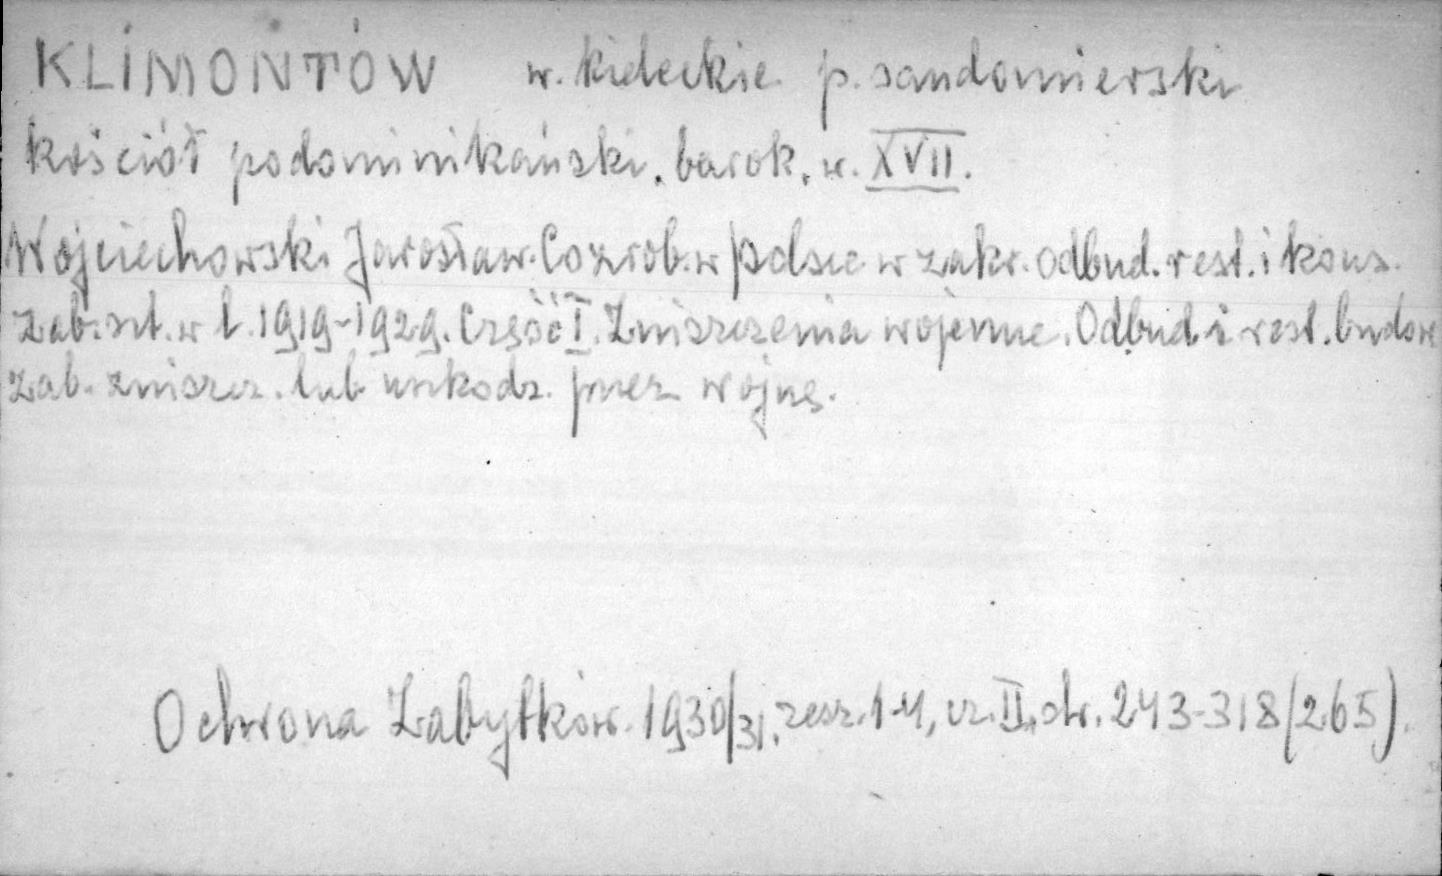 KLIMONTÓW w. kieleckie p. sandomierski
kościół podominikański. barok. w. XVII.
Wojciechowski Jarosław. Co zrob. w Polsce w zakr. odbud. rest. i kons.
zab. szt. w l. 1919-1929. Część I. Zniszczenia wojenne. Odbud. i rest. budow
zab. zniszcz. lub uszkodz. przez wojnę.
Ochrona Zabytków. 1930/31, zesz. 1-4, cz. II, str. 243-318 (265).